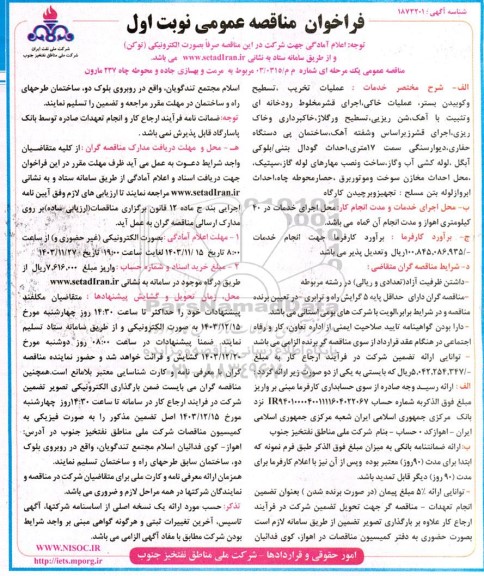 شناسه آگهی: ۱۸۷۳۲۰۱
فراخوان مناقصه عمومی نوبت اول
شرکت ملی نفت ایران
شرکت ملی مناطق نفتخیز جنوب
توجه: اعلام آمادگی جهت شرکت در این مناقصه صرفاً بصورت الکترونیکی (توکن)
و از طریق سامانه ستاد به نشانی www.setadIran.ir می باشد.
مناقصه عمومی یک مرحله ای شماره م م/۰۳/۰۳۱۵ مربوط به مرمت و بهسازی جاده و محوطه چاه ۴۳۷ مارون
الف- شرح مختصر خدمات : عملیات تخریب ،تسطیح
وکوبیدن بستر، عملیات خاکی،اجرای قشرمخلوط رودخانه ای
وتثبیت با آهک،شن ریزی،تسطیح ورگلاژ،خاکبرداری وخاک
ریزی،اجرای قشرزیراساس وشفته آهک،ساختمان پی دستگاه
حفاری،دیوارسنگی سمت ۱۷متری،احداث گودال بتنی/بلوکی
آبگل ،لوله کشی آب وگاز،ساخت ونصب مهارهای لوله گاز،سپتیک،
،محل احداث مخازن سوخت وموتوربرق ،حصارمحوطه چاه،احداث
ابروازلوله بتن مسلح - تجهیزوبرچیدن کارگاه
ب- محل اجرای خدمات و مدت انجام کار:محل اجرای خدمات در ۴۰
کیلومتری اهواز و مدت انجام آن ۶ماه می باشد.
ج- برآورد کارفرما : برآورد کارفرما جهت انجام خدمات
-/۱۰۰،۸۴۵،۰۸۶،۹۳۵ریال وتعدیل پذیر می باشد
د- شرایط مناقصه گران متقاضی :
-داشتن ظرفیت آزاد(تعدادی و ریالی) در رشته مربوطه
-مناقصه گران دارای حداقل پایه ۵ گرایش راه و ترابری -در تعیین برنده
مناقصه و در شرایط برابر الویت با شرکت های بومی استانی می باشد
- دارا بودن گواهینامه تایید صلاحیت ایمنی از اداره تعاون، کار و رفاه
اجتماعی در هنگام عقد قرارداد از سوی مناقصه گر برنده الزامی می باشد
- توانایی ارائه تضمین شرکت در فرآیند ارجاع کار به مبلغ
-/۵،۰۴۲،۲۵۴،۳۴۷ریال که بایستی به یکی از دو صورت زیر ارائه گردد:
الف : ارائه رسید وجه صادره از سوی حسابداری کارفرما مبنی بر واریز
مبلغ فوق الذکربه شماره حساب نزد
بانک مرکزی جمهوری اسلامی ایران شعبه مرکزی جمهوری اسلامی
ایران - اهوازکد - حساب - بنام شرکت ملی مناطق نفتخیز جنوب
ب:ارائه ضمانتنامه بانکی به میزان مبلغ فوق الذکر طبق فرم نمونه که
ابتدا برای مدت (۹۰روز) معتبر بوده وپس از آن نیز با اعلام کارفرما برای
مدت (۹۰ روز) دیگر قابل تمدید باشد.
- توانایی ارائه ۵٪ مبلغ پیمان (در صورت برنده شدن ) بعنوان تضمین
انجام تعهدات - مناقصه گر جهت تحویل تضمین شرکت در فرآیند
ارجاع کار علاوه بر بارگذاری تصویر تضمین از طریق سامانه لازم است
بصورت حضوری به دفتر کمیسیون مناقصات در اهواز، کوی فدائیان
اسلام مجتمع تندگویان، واقع در روبروی بلوک دو، ساختمان طرحهای
راه و ساختمان در مهلت مقرر مراجعه و تضمین را تسلیم نمایند.
توجه:ضمانت نامه فرآیند ارجاع کار و انجام تعهدات صادره توسط بانک
پاسارگاد قابل پذیرش نمی باشد.
هـ- محل و مهلت دریافت مدارک مناقصه گران :از کلیه متقاضیان
واجد شرایط دعوت به عمل می آید ظرف مهلت مقرر در این فراخوان
جهت دریافت اسناد و اعلام آمادگی از طریق سامانه ستاد و به نشانی
www.setadIran.irمراجعه نمایند تا ارزیابی های لازم وفق آیین نامه
اجرایی بند ج ماده ۱۲ قانون برگزاری مناقصات(ارزیابی ساده)بر روی
مدارک ارسالی مناقصه گران به عمل آید.
۱ - مهلت اعلام آمادگی :بصورت الکترونیکی (غیر حضوری و) از ساعت
۸:۰۰ تاریخ ۱۴۰۳/۱۱/۱۵ لغایت ساعت ۱۹:۰۰ تاریخ ۱۴۰۳/۱۱/۲۷
۲ - مبلغ خرید اسناد و شماره حساب : واریز مبلغ ۷،۶۱۶،۰۰۰ریال از
طریق درگاه موجود در سامانه به نشانی www.setadIran.ir
محل، زمان تحویل و گشایش پیشنهادها : متقاضیان مکلفند
پیشنهادات خود را حداکثر تا ساعت ۱۴:۳۰ روز چهارشنبه مورخ
۱۴۰۳/۱۲/۱۵ به صورت الکترونیکی و از طریق سامانه ستاد تسلیم
نمایند. ضمنا پیشنهادات در ساعت ۰۸:۰۰ روز دوشنبه مورخ
۱۴۰۳/۱۲/۲۰ گشایش و قرائت خواهد شد و حضور نماینده مناقصه
گران با معرفی نامه و کارت شناسایی معتبر بلامانع است.همچنین
مناقصه گران می بایست ضمن بارگذاری الکترونیکی تصویر تضمین
شرکت در فرایند ارجاع کار در سامانه تا ساعت ۱۴:۳۰روز چهارشنبه
مورخ ۱۴۰۳/۱۲/۱۵ اصل تضمین مذکور را به صورت فیزیکی به
کمیسیون مناقصات شرکت ملی مناطق نفتخیز جنوب در آدرس:
اهواز- کوی فدائیان اسلام مجتمع تندگویان، واقع در روبروی بلوک
دو، ساختمان سابق طرحهای راه و ساختمان تسلیم نمایند.
همزمان ارائه معرفی نامه و کارت ملی برای متقاضیان شرکت در مناقصه و
نمایندگان شرکتها در همه مراحل لازم و ضروری می باشد.
تذکر: حسب مورد ارائه یک نسخه اصلی از اساسنامه شرکتها، آگهی
تاسیس، آخرین تغییرات ثبتی و هرگونه گواهی مبنی بر واجد شرایط
بودن شرکت مطابق با مفاد آگهی الزامی می باشد.
WWW.NISOC.IR
http://iets.mporg.ir
امور حقوقی و قراردادها - شرکت ملی مناطق نفتخیز جنوب